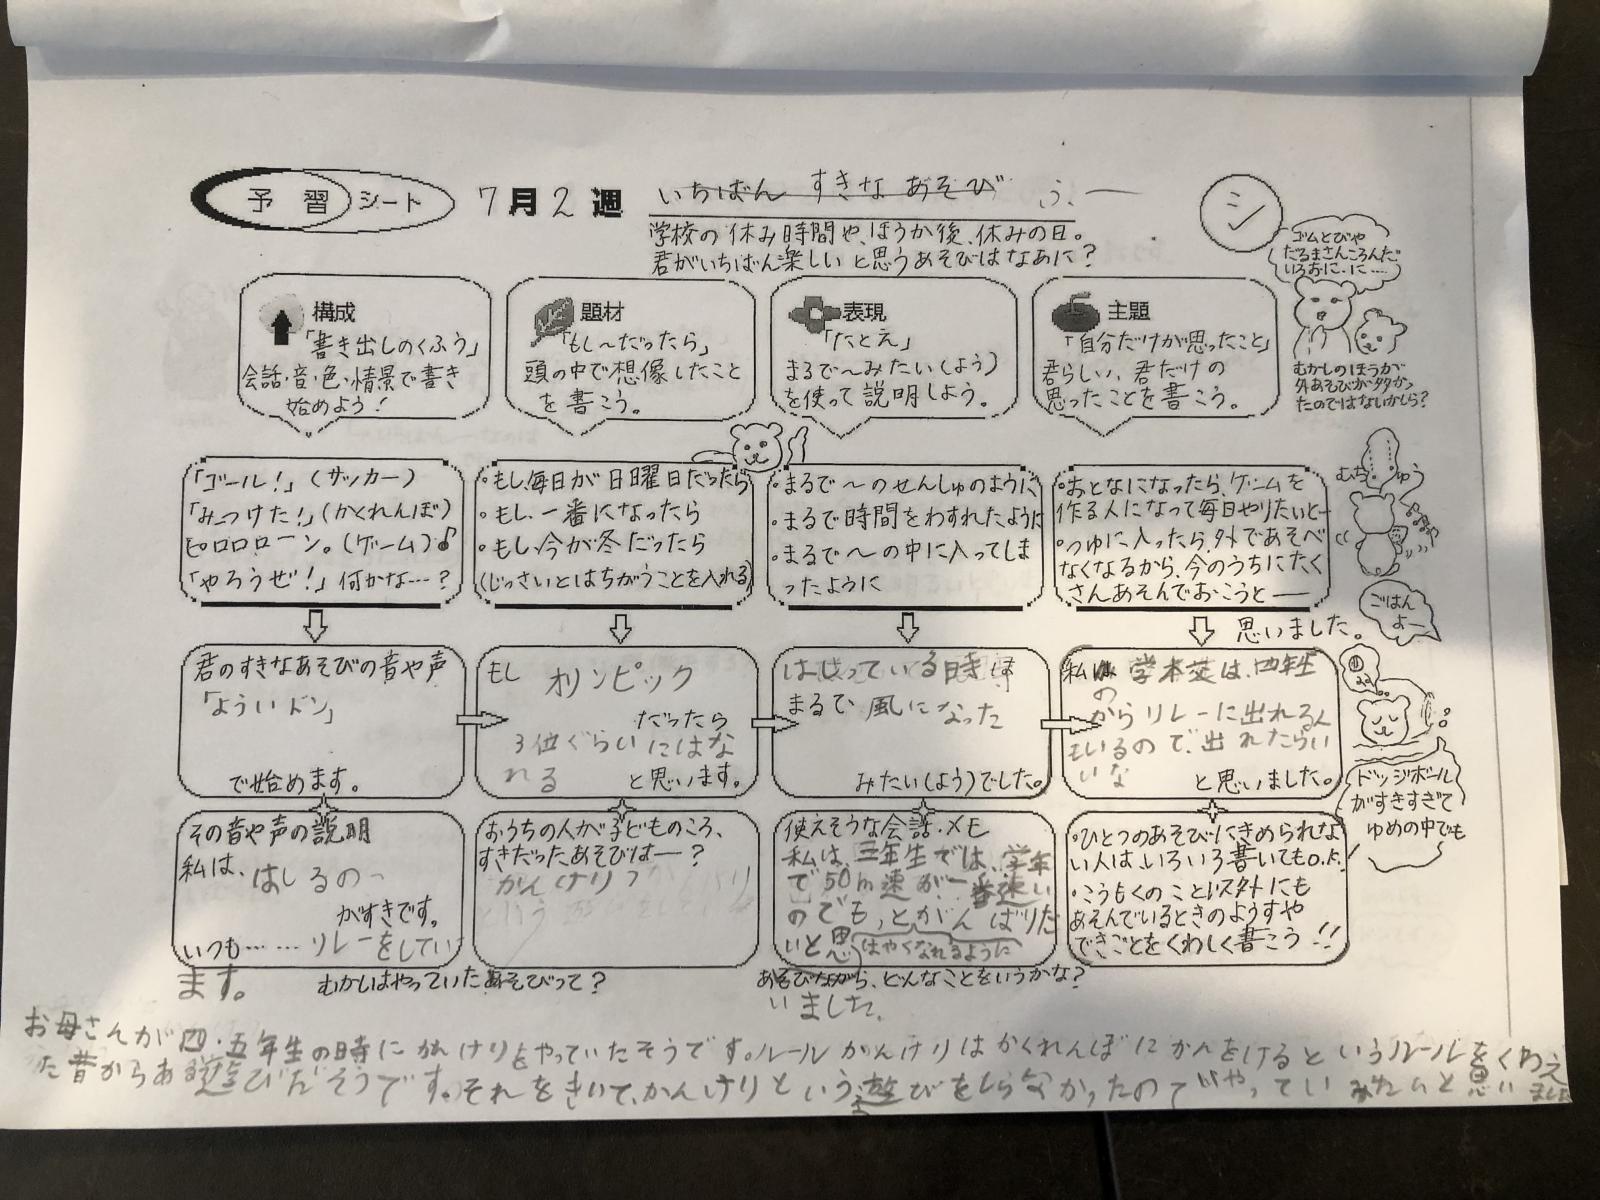 予習シート
7月2週
いちばん すきな あそび
シ
学校の休み時間や、ほうか後、休みの日。
君がいちばん楽しいと思うあそびはなあに?
ゴムとびや
だるまさんころんだ
いろおに・に……
むかしのほうが
外あそびが多かっ
たのではないかしら?
構成
「書き出しのくふう」
会話・音・色・情景で書き
始めよう!
題材
「もし〜だったら」
頭の中で想像したこと
を書こう。
表現
「たとえ」
まるで〜みたい(よう)
を使って説明しよう。
主題
「自分だけが思ったこと」
君らしい、君だけの
思ったことを書こう。
「ゴール!」(サッカー)
「みつけた!」(かくれんぼ)
ピロロローン。(ゲーム)♪
「やろうぜ!」何かな…?
・もし、毎日が日曜日だったら
・もし、一番になったら
・もし、今が冬だったら
(じっさいとはちがうことを入れる)
・まるで〜のせんしゅのように
・まるで時間をわすれたように
・まるで〜の中に入ってしま
ったように
・おとなになったら、ゲームを
作る人になって毎日やりたいと―
・つゆに入ったら、外であそべ
なくなるから、今のうちにたく
さんあそんでおこうと――
思いました。
むちゅう
ごはん
よー
君のすきなあそびの音や声
「よういドン」
で始めます。
もし オリンピック
だったら
3位ぐらいにはな
れる
と思います。
はしっている時は
まるで 風になった
みたい(よう)でした。
私の学校は、四年生
からリレーに出れる人
もいるので、出れたらい
いな
と思いました。
ドッジボール
がすきすぎて
ゆめの中でも
その音や声の説明
私は、はしるの
がすきです。
いつも……リレーをしてい
ます。
おうちの人が子どものころ、
すきだったあそびは―?
かんけり
むかしはやっていたあそびって?
使えそうな会話・メモ
私は、三年生では、学年
で50m速が一番速い
のでも、とがんばりた
いと思
はやくなれるように
あそびながら、どんなことをいうかな?
いました。
・ひとつのあそびにきめられな
い人は、いろいろ書いてもO.K!
・こうもくのこと以外にも
あそんでいるときのようすや
できごとをくわしく書こう!!
お母さんが四・五年生の時にかんけりをやっていたそうです。ルールかんけりはかくれんぼにかんをけるというルールをくわえ
た昔からある遊びだそうです。それをきいて、かんけりという遊びをしらなかったのでやっていみたいと思いました